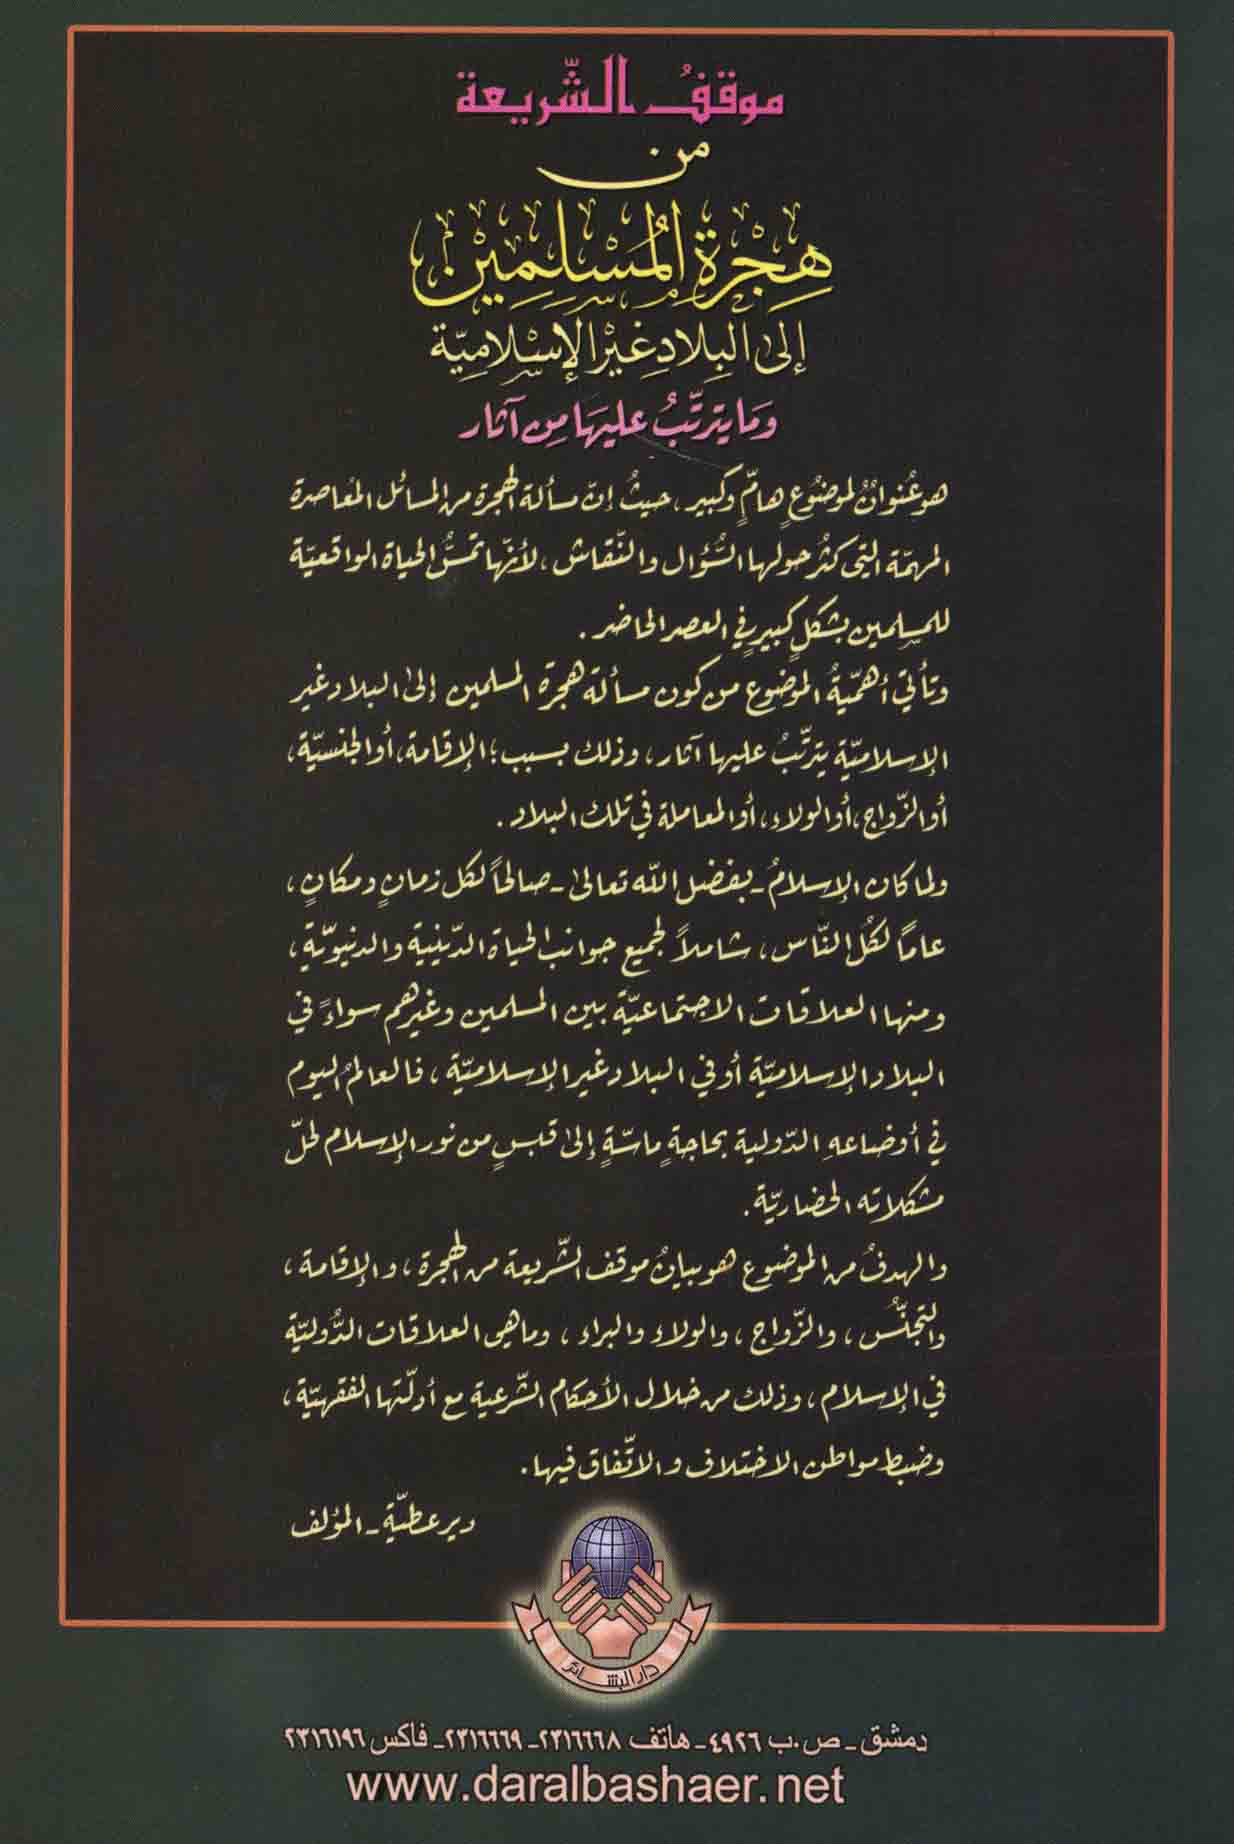 موقفُ الشّريعة
من
هِجْرَةِ المُسْلِمِيْن
إلى البِلادِ غَيْرِ الإسْلاميّة
وَمَا يترتَّبُ عليهَا مِن آثار
هو عُنوانٌ لموضُوعٍ هامٍّ وكبير، حيثُ إنّ مسألة الهجرة من المسائل المُعاصرة
المهمّة التي كثُر حولها السُّؤال والنّقاش، لأنّها تمسُّ الحياة الواقعيّة
للمسلمين بشكلٍ كبيرٍ في العصر الحاضر.
وتأتي أهمّيةُ الموضوع من كون مسألة هجرة المسلمين إلى البلاد غير
الإسلاميّة يترتّبُ عليها آثار، وذلك بسبب؛ الإقامة، أو الجنسيّة،
أو الزّواج، أو الولاء، أو المعاملة في تلك البلاد.
ولما كان الإسلامُ - بفضل الله تعالى - صالحاً لكل زمانٍ ومكانٍ،
عاماً لكُل النّاس، شاملاً لجميع جوانب الحياة الدّينية والدنيويّة،
ومنها العلاقات الاجتماعيّة بين المسلمين وغيرهم سواءً في
البلاد الإسلاميّة أو في البلاد غير الإسلاميّة، فالعالمُ اليوم
في أوضاعهِ الدّولية بحاجةٍ ماسّةٍ إلى قبسٍ من نور الإسلام لحلّ
مشكلاته الحضاريّة.
والهدفُ من الموضوع هو بيانُ موقف الشّريعة من الهجرة، والإقامة،
والتجنّس، والزّواج، والولاء والبراء، وما هي العلاقات الدُّوليّة
في الإسلام، وذلك من خلال الأحكام الشّرعية مع أدلّتها الفقهيّة،
وضبط مواطن الاختلاف والاتّفاق فيها.
ديرعطيّة - المؤلف
دار البشائر
دمشق - ص.ب ٤٩٢٦ - هاتف ٢٣١٦٦٦٨ - ٢٣١٦٦٦٩ - فاكس ٢٣١٦١٩٦
www.daralbashaer.net